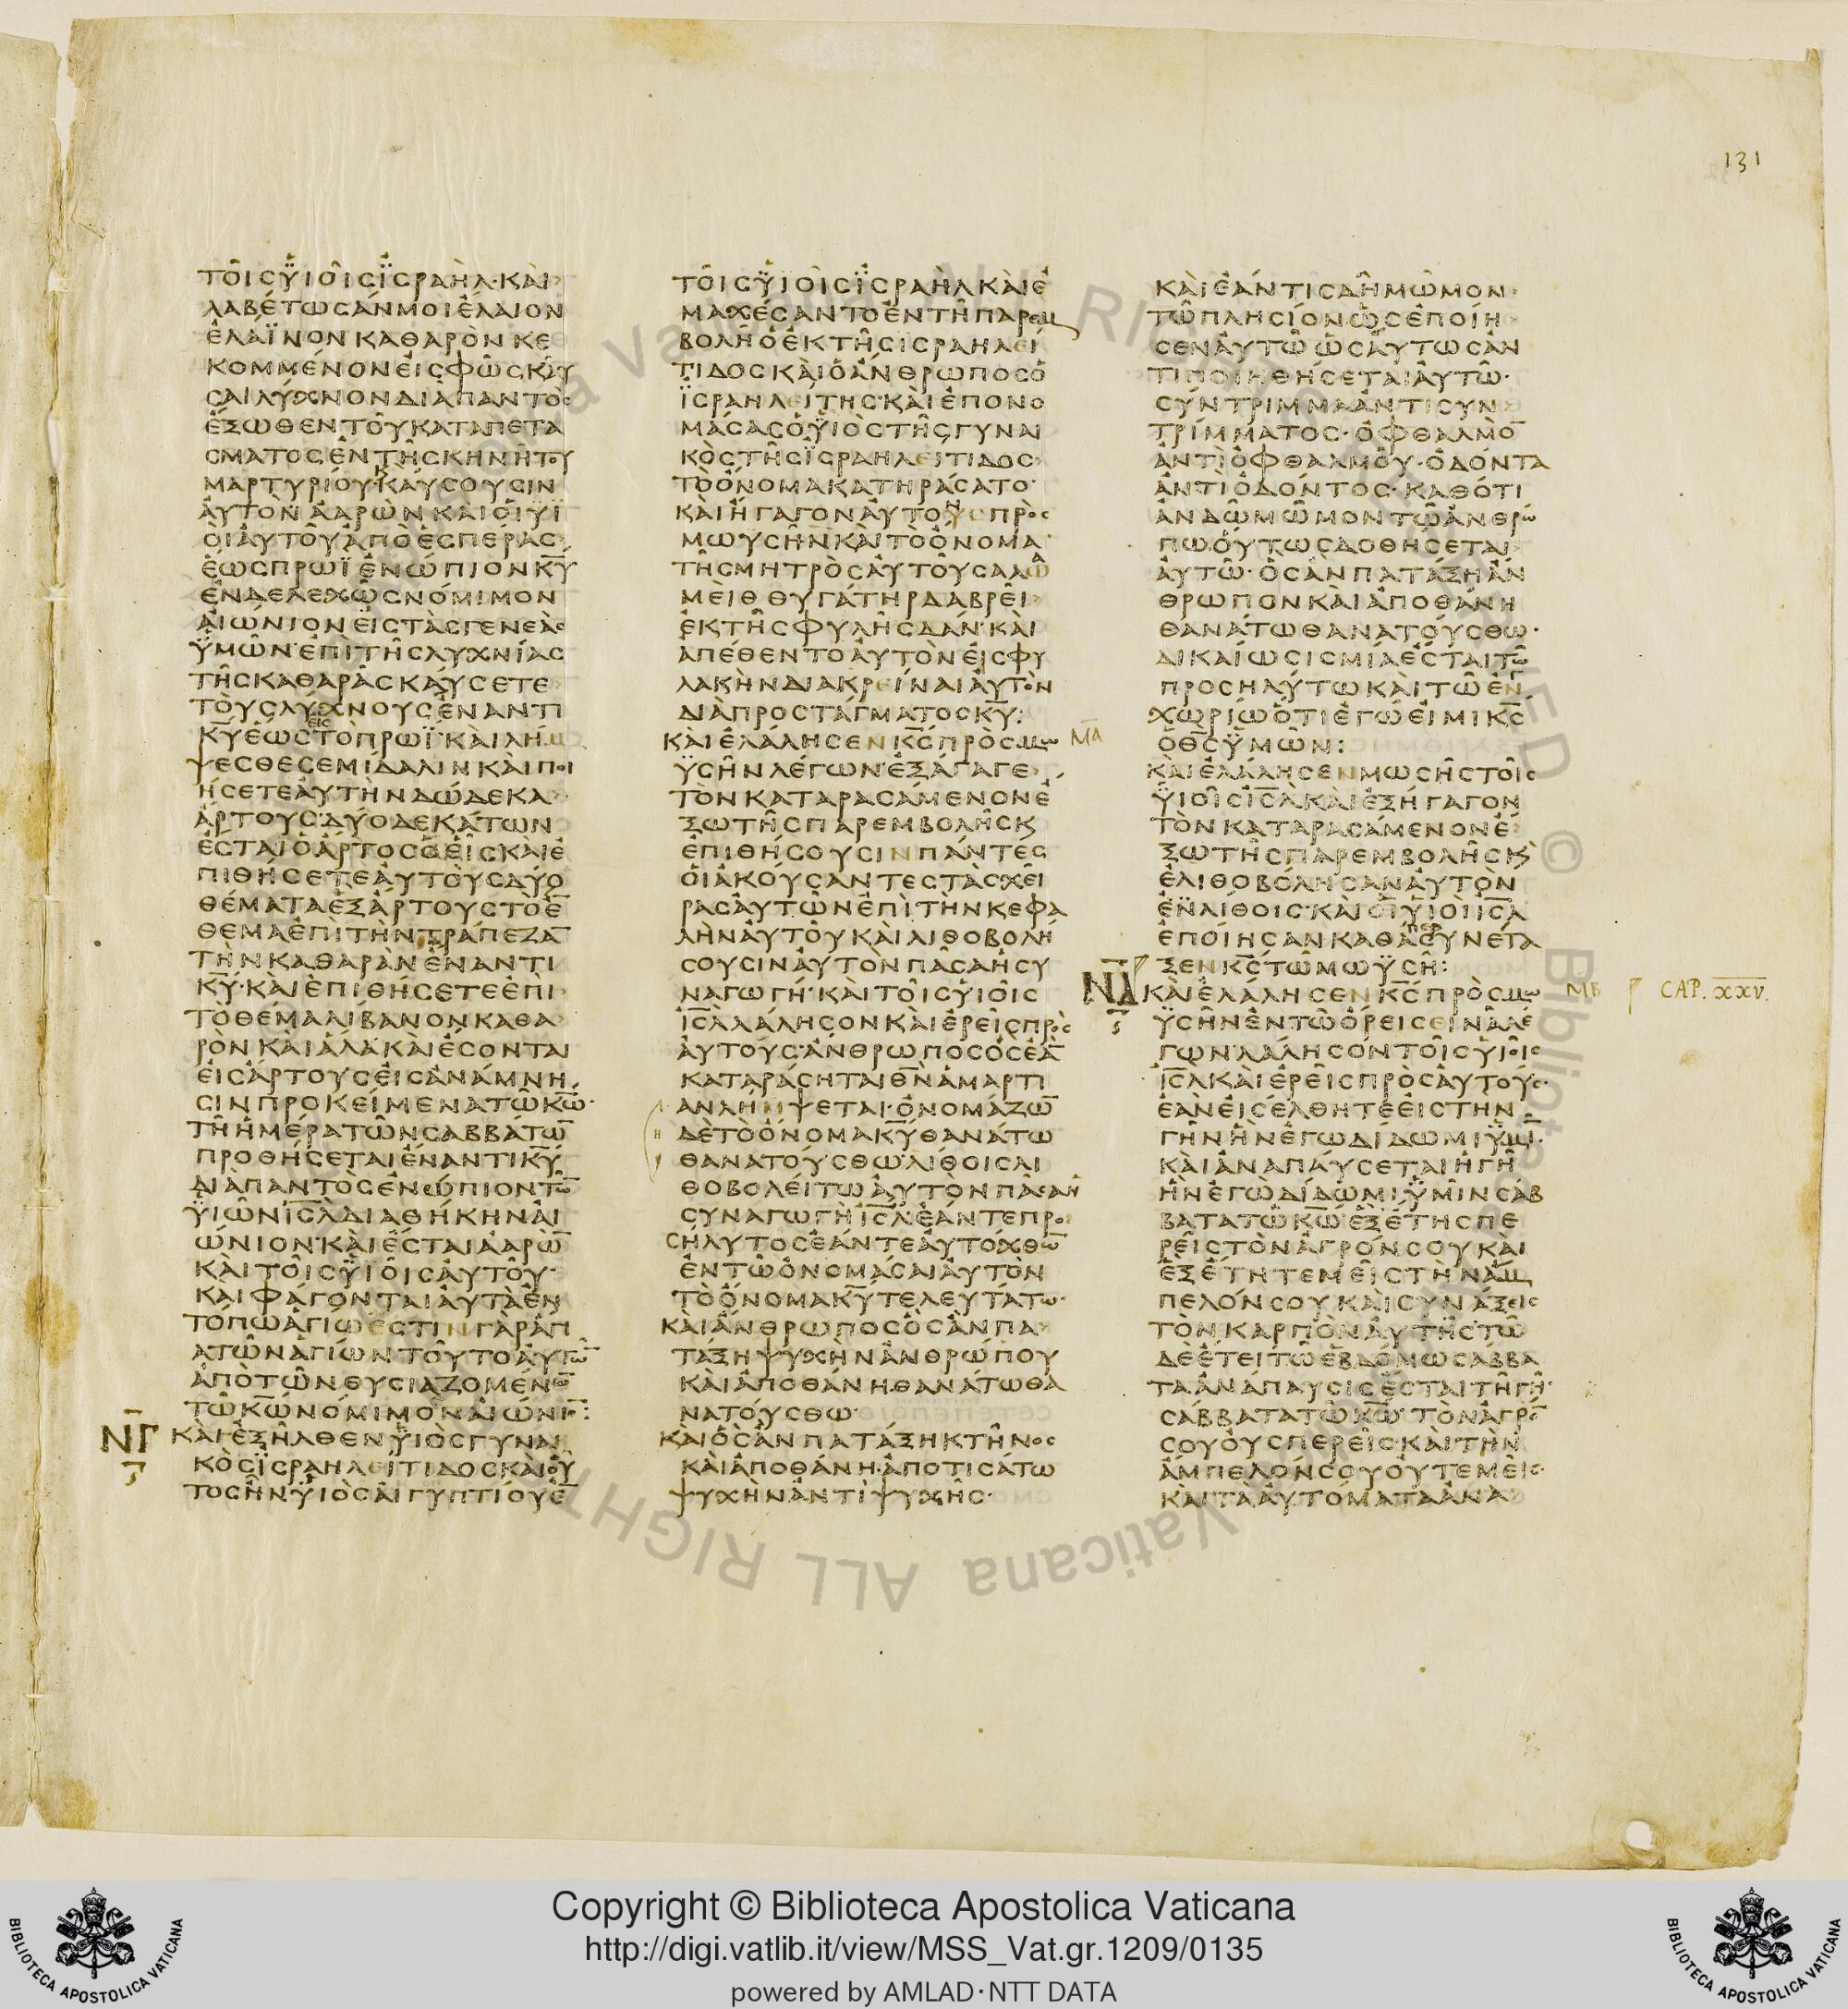 131
ΤΟΙΣ ΥΙΟΙΣ ΙΣΡΑΗΛ · ΚΑΙ
ΛΑΒΕΤΩΣΑΝ ΜΟΙ ΕΛΑΙΟΝ
ΕΛΑΪΝΟΝ ΚΑΘΑΡΟΝ ΚΕ
ΚΟΜΜΕΝΟΝ ΕΙΣ ΦΩΣ ΚΑΥ
ΣΑΙ ΛΥΧΝΟΝ ΔΙΑ ΠΑΝΤΟΣ
ΕΞΩΘΕΝ ΤΟΥ ΚΑΤΑΠΕΤΑ
ΣΜΑΤΟΣ ΕΝ ΤΗ ΣΚΗΝΗ ΤΟΥ
ΜΑΡΤΥΡΙΟΥ · ΚΑΥΣΟΥΣΙΝ
ΑΥΤΟΝ ΑΑΡΩΝ ΚΑΙ ΟΙ ΥΙ
ΟΙ ΑΥΤΟΥ ΑΠΟ ΕΣΠΕΡΑΣ
ΕΩΣ ΠΡΩΪ ΕΝΩΠΙΟΝ Κ̅Υ̅
ΕΝΔΕΛΕΧΩΣ ΝΟΜΙΜΟΝ
ΑΙΩΝΙΟΝ ΕΙΣ ΤΑΣ ΓΕΝΕΑΣ
ΫΜΩΝ · ΕΠΙ ΤΗΣ ΛΥΧΝΙΑΣ
ΤΗΣ ΚΑΘΑΡΑΣ ΚΑΥΣΕΤΕ
ΤΟΥΣ ΛΥΧΝΟΥΣ ΕΝΑΝΤΙ
εις
Κ̅Υ̅ ΕΩΣ ΤΟ ΠΡΩΪ · ΚΑΙ ΛΗΜ
ΨΕΣΘΕ ΣΕΜΙΔΑΛΙΝ ΚΑΙ ΠΟΙ
ΗΣΕΤΕ ΑΥΤΗΝ ΔΩΔΕΚΑ
ΑΡΤΟΥΣ · ΔΥΟ ΔΕΚΑΤΩΝ
ΕΣΤΑΙ Ο ΑΡΤΟΣ Ο ΕΙΣ ΚΑΙ Ε
ΠΙΘΗΣΕΤΕ ΑΥΤΟΥΣ ΔΥΟ
ΘΕΜΑΤΑ ΕΞ ΑΡΤΟΥΣ ΤΟ Ε̅
ΘΕΜΑ ΕΠΙ ΤΗΝ ΤΡΑΠΕΖΑ̅
ΤΗΝ ΚΑΘΑΡΑΝ ΕΝΑΝΤΙ
Κ̅Υ̅ · ΚΑΙ ΕΠΙΘΗΣΕΤΕ ΕΠΙ
ΤΟ ΘΕΜΑ ΛΙΒΑΝΟΝ ΚΑΘΑ
ΡΟΝ ΚΑΙ ΑΛΑ ΚΑΙ ΕΣΟΝΤΑΙ
ΕΙΣ ΑΡΤΟΥΣ ΕΙΣ ΑΝΑΜΝΗ
ΣΙΝ ΠΡΟΚΕΙΜΕΝΑ ΤΩ Κ̅Ω̅ ·
ΤΗ ΗΜΕΡΑ ΤΩΝ ΣΑΒΒΑΤΩ̅
ΠΡΟΘΗΣΕΤΑΙ ΕΝΑΝΤΙ Κ̅Υ̅
ΔΙΑ ΠΑΝΤΟΣ ΕΝΩΠΙΟΝ ΤΩ̅
ΫΙΩΝ Ι̅Σ̅Λ̅ ΔΙΑΘΗΚΗΝ ΑΙ
ΩΝΙΟΝ · ΚΑΙ ΕΣΤΑΙ ΑΑΡΩ̅
ΚΑΙ ΤΟΙΣ ΫΙΟΙΣ ΑΥΤΟΥ ·
ΚΑΙ ΦΑΓΟΝΤΑΙ ΑΥΤΑ ΕΝ
ΤΟΠΩ ΑΓΙΩ ΕΣΤΙΝ ΓΑΡ ΑΓΙ
Α ΤΩΝ ΑΓΙΩΝ ΤΟΥΤΟ ΑΥΤΩ̅
ΑΠΟ ΤΩΝ ΘΥΣΙΑΖΟΜΕΝΩ̅
ΤΩ Κ̅Ω̅ ΝΟΜΙΜΟΝ ΑΙΩΝΙΟ̅ :
ΝΓ ΚΑΙ ΕΞΗΛΘΕΝ ΫΙΟΣ ΓΥΝΑΙ
ΚΟΣ ΪΣΡΑΗΛΕΙΤΙΔΟΣ ΚΑΙ ΟΥ
ΤΟΣ ΗΝ ΫΙΟΣ ΑΙΓΥΠΤΙΟΥ Ε̅
ΤΟΙΣ ΫΙΟΙΣ ΪΣΡΑΗΛ ΚΑΙ Ε
ΜΑΧΕΣΑΝΤΟ ΕΝ ΤΗ ΠΑΡΕΜ
ΒΟΛΗ Ο ΕΚ ΤΗΣ ΙΣΡΑΗΛΕΙ
ΤΙΔΟΣ ΚΑΙ Ο ΑΝΘΡΩΠΟΣ Ο
ΪΣΡΑΗΛΕΙΤΗΣ · ΚΑΙ ΕΠΟΝΟ
ΜΑΣΑΣ Ο ΫΙΟΣ ΤΗΣ ΓΥΝΑΙ
ΚΟΣ ΤΗΣ ΪΣΡΑΗΛΕΙΤΙΔΟΣ
ΤΟ ΟΝΟΜΑ ΚΑΤΗΡΑΣΑΤΟ ·
ΚΑΙ ΗΓΑΓΟΝ ΑΥΤΟΝ ΠΡΟΣ
ΜΩΥΣΗΝ ΚΑΙ ΤΟ ΟΝΟΜΑ
ΤΗΣ ΜΗΤΡΟΣ ΑΥΤΟΥ ΣΑΛΩ
ΜΕΙΘ ΘΥΓΑΤΗΡ ΔΑΒΡΕΙ
ΕΚ ΤΗΣ ΦΥΛΗΣ ΔΑΝ · ΚΑΙ
ΑΠΕΘΕΝΤΟ ΑΥΤΟΝ ΕΙΣ ΦΥ
ΛΑΚΗΝ ΔΙΑΚΡΕΙΝΑΙ ΑΥΤΟΝ
ΔΙΑ ΠΡΟΣΤΑΓΜΑΤΟΣ Κ̅Υ̅ :
ΚΑΙ ΕΛΑΛΗΣΕΝ Κ̅Σ̅ ΠΡΟΣ ΜΩ ΜΑ
ΫΣΗΝ ΛΕΓΩΝ · ΕΞΑΓΑΓΕ
ΤΟΝ ΚΑΤΑΡΑΣΑΜΕΝΟΝ Ε
ΞΩ ΤΗΣ ΠΑΡΕΜΒΟΛΗΣ Κ
ΕΠΙΘΗΣΟΥΣΙΝ ΠΑΝΤΕΣ
ΟΙ ΑΚΟΥΣΑΝΤΕΣ ΤΑΣ ΧΕΙ
ΡΑΣ ΑΥΤΩΝ ΕΠΙ ΤΗΝ ΚΕΦΑ
ΛΗΝ ΑΥΤΟΥ ΚΑΙ ΛΙΘΟΒΟΛΗ
ΣΟΥΣΙΝ ΑΥΤΟΝ ΠΑΣΑ Η ΣΥ
ΝΑΓΩΓΗ · ΚΑΙ ΤΟΙΣ ΥΙΟΙΣ
Ι̅Σ̅Λ̅ ΛΑΛΗΣΟΝ ΚΑΙ ΕΡΕΙΣ ΠΡΟΣ
ΑΥΤΟΥΣ · ΑΝΘΡΩΠΟΣ ΟΣ ΕΑ̅
ΚΑΤΑΡΑΣΗΤΑΙ Θ̅Ν̅ ΑΜΑΡΤΙ
ΑΝ ΛΗΜΨΕΤΑΙ · ΟΝΟΜΑΖΩ̅
ΔΕ ΤΟ ΟΝΟΜΑ Κ̅Υ̅ ΘΑΝΑΤΩ
ΘΑΝΑΤΟΥΣΘΩ · ΛΙΘΟΙΣ ΛΙ
ΘΟΒΟΛΕΙΤΩ ΑΥΤΟΝ ΠΑΣΑ Η
ΣΥΝΑΓΩΓΗ Ι̅Σ̅Λ̅ · ΕΑΝ ΤΕ ΠΡΟ
ΣΗΛΥΤΟΣ ΕΑΝ ΤΕ ΑΥΤΟΧΘΩ̅
ΕΝ ΤΩ ΟΝΟΜΑΣΑΙ ΑΥΤΟΝ
ΤΟ ΟΝΟΜΑ Κ̅Υ̅ ΤΕΛΕΥΤΑΤΩ ·
ΚΑΙ ΑΝΘΡΩΠΟΣ ΟΣ ΑΝ ΠΑ
ΤΑΞΗ ΨΥΧΗΝ ΑΝΘΡΩΠΟΥ
ΚΑΙ ΑΠΟΘΑΝΗ · ΘΑΝΑΤΩ ΘΑ
ΝΑΤΟΥΣΘΩ ·
ΚΑΙ ΟΣ ΑΝ ΠΑΤΑΞΗ ΚΤΗΝΟΣ
ΚΑΙ ΑΠΟΘΑΝΗ · ΑΠΟΤΙΣΑΤΩ
ΨΥΧΗΝ ΑΝΤΙ ΨΥΧΗΣ ·
ΚΑΙ ΕΑΝ ΤΙΣ ΔΗ ΜΩΜΟΝ
ΤΩ ΠΛΗΣΙΟΝ · ΩΣ ΕΠΟΙΗ
ΣΕΝ ΑΥΤΩ ΩΣΑΥΤΩΣ ΑΝ
ΤΙΠΟΙΗΘΗΣΕΤΑΙ ΑΥΤΩ ·
ΣΥΝΤΡΙΜΜΑ ΑΝΤΙ ΣΥΝ
ΤΡΙΜΜΑΤΟΣ · ΟΦΘΑΛΜΟ̅
ΑΝΤΙ ΟΦΘΑΛΜΟΥ · ΟΔΟΝΤΑ
ΑΝΤΙ ΟΔΟΝΤΟΣ · ΚΑΘΟΤΙ
ΑΝ ΔΩ ΜΩΜΟΝ ΤΩ ΑΝΘΡΩ
ΠΩ ΟΥΤΩΣ ΔΟΘΗΣΕΤΑΙ
ΑΥΤΩ · ΟΣ ΑΝ ΠΑΤΑΞΗ ΑΝ
ΘΡΩΠΟΝ ΚΑΙ ΑΠΟΘΑΝΗ
ΘΑΝΑΤΩ ΘΑΝΑΤΟΥΣΘΩ ·
ΔΙΚΑΙΩΣΙΣ ΜΙΑ ΕΣΤΑΙ ΤΩ
ΠΡΟΣΗΛΥΤΩ ΚΑΙ ΤΩ ΕΝ
ΧΩΡΙΩ ΟΤΙ ΕΓΩ ΕΙΜΙ Κ̅Σ̅
Ο Θ̅Σ̅ ΫΜΩΝ :
ΚΑΙ ΕΛΑΛΗΣΕΝ ΜΩΣΗΣ ΤΟΙΣ
ΫΙΟΙΣ Ι̅Σ̅Λ̅ ΚΑΙ ΕΞΗΓΑΓΟΝ
ΤΟΝ ΚΑΤΑΡΑΣΑΜΕΝΟΝ Ε
ΞΩ ΤΗΣ ΠΑΡΕΜΒΟΛΗΣ Κ
ΕΛΙΘΟΒΟΛΗΣΑΝ ΑΥΤΟΝ
ΕΝ ΛΙΘΟΙΣ · ΚΑΙ ΟΙ ΫΙΟΙ Ι̅Σ̅Λ̅
ΕΠΟΙΗΣΑΝ ΚΑΘΑ ΣΥΝΕΤΑ
ΞΕΝ Κ̅Σ̅ ΤΩ ΜΩΫΣΗ :
ΝΔ ΚΑΙ ΕΛΑΛΗΣΕΝ Κ̅Σ̅ ΠΡΟΣ ΜΩ ΜΒ CAP. XXV.
ΫΣΗΝ ΕΝ ΤΩ ΟΡΕΙ ΣΕΙΝΑ ΛΕ
ΓΩΝ · ΛΑΛΗΣΟΝ ΤΟΙΣ ΥΙΟΙΣ
Ι̅Σ̅Λ̅ ΚΑΙ ΕΡΕΙΣ ΠΡΟΣ ΑΥΤΟΥΣ ·
ΕΑΝ ΕΙΣΕΛΘΗΤΕ ΕΙΣ ΤΗΝ
ΓΗΝ ΗΝ ΕΓΩ ΔΙΔΩΜΙ ΫΜΙ̅ ·
ΚΑΙ ΑΝΑΠΑΥΣΕΤΑΙ Η ΓΗ
ΗΝ ΕΓΩ ΔΙΔΩΜΙ ΫΜΙΝ ΣΑΒ
ΒΑΤΑ ΤΩ Κ̅Ω̅ ΕΞ ΕΤΗ ΣΠΕ
ΡΕΙΣ ΤΟΝ ΑΓΡΟΝ ΣΟΥ ΚΑΙ
ΕΞ ΕΤΗ ΤΕΜΕΙΣ ΤΗΝ ΑΜ
ΠΕΛΟΝ ΣΟΥ ΚΑΙ ΣΥΝΑΞΕΙΣ
ΤΟΝ ΚΑΡΠΟΝ ΑΥΤΗΣ · ΤΩ
ΔΕ ΕΤΕΙ ΤΩ ΕΒΔΟΜΩ ΣΑΒΒΑ
ΤΑ ΑΝΑΠΑΥΣΙΣ ΕΣΤΑΙ ΤΗ ΓΗ ·
ΣΑΒΒΑΤΑ ΤΩ Κ̅Ω̅ · ΤΟΝ ΑΓΡΟ̅
ΣΟΥ ΟΥ ΣΠΕΡΕΙΣ · ΚΑΙ ΤΗΝ
ΑΜΠΕΛΟΝ ΣΟΥ ΟΥ ΤΕΜΕΙΣ ·
ΚΑΙ ΤΑ ΑΥΤΟΜΑΤΑ ΑΝΑ
Copyright © Biblioteca Apostolica Vaticana
http://digi.vatlib.it/view/MSS_Vat.gr.1209/0135
powered by AMLAD · NTT DATA
BIBLIOTECA APOSTOLICA VATICANA
BIBLIOTECA APOSTOLICA VATICANA